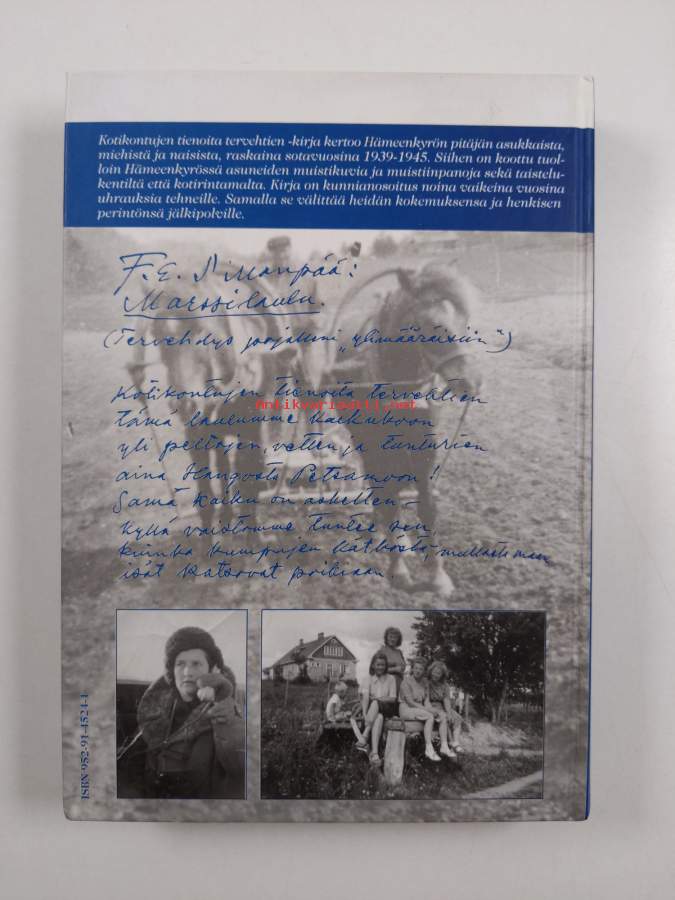 Kotikontujen tienoita tervehtien -kirja kertoo Hämeenkyrön pitäjän asukkaista,
miehistä ja naisista, raskaina sotavuosina 1939-1945. Siihen on koottu tuol-
loin Hämeenkyrössä asuneiden muistikuvia ja muistiinpanoja sekä taistelu-
kentiltä että kotirintamalta. Kirja on kunnianosoitus noina vaikeina vuosina
uhrauksia tehneille. Samalla se välittää heidän kokemuksensa ja henkisen
perintönsä jälkipolville.
F.E. Sillanpää:
Marssilaulu.
(Tervehdys pojalleni „ylimääräisiin")
Kotikontujen tienoita tervehtien
tämä laulumme kaikukoon
yli peltojen, vetten ja tunturien
aina Hangosta Petsamoon!
Sama kaiku on askelten –
kyllä vaistomme tuntee sen,
kuinka kumpujen kätköstä, multaisemaan
isät katsovat poikiaan.
antikvariaatti.net
ISBN 952-91-4524-1